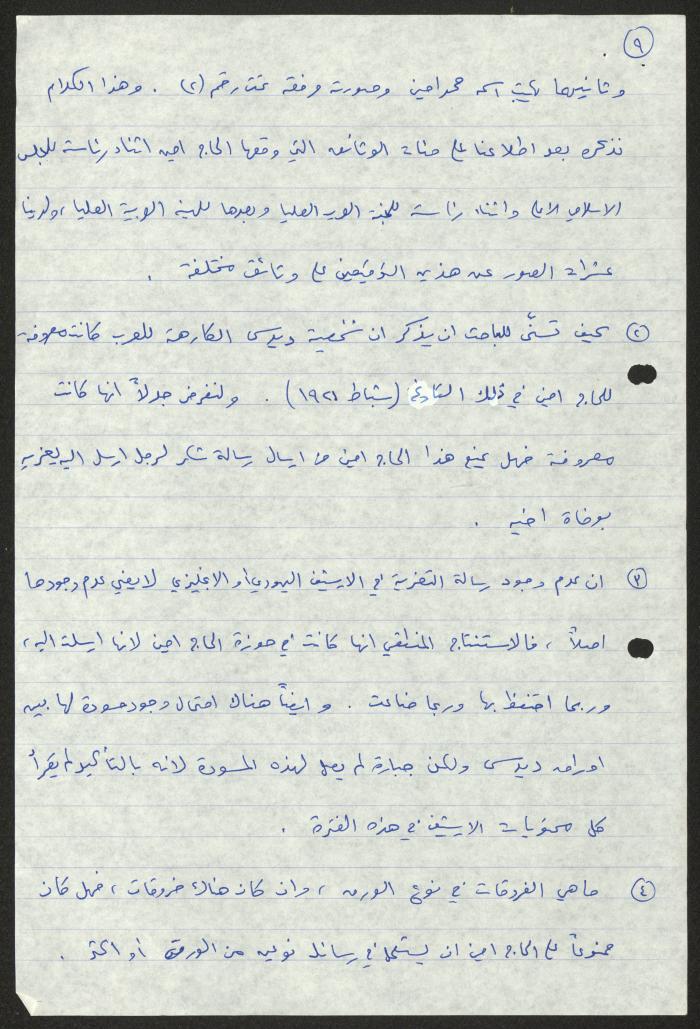 ٩
وثانيهما يكتب اسمه محمد امين وصورته مرفقه تحت رقم (٢) . وهذا الكلام
نذكره بعد اطلاعنا على مئات الوثائق التي وقعها الحاج امين اثناء رئاسته للمجلس
الاسلامي الاعلى واثناء رئاسته للجنة العربية العليا وبعدها للهيئة العربية العليا ، ولدينا
عشرات الصور عن هذين التوقيعين على وثائق مختلفة .
٢ كيف تسنّى للباحث ان يذكر ان شخصية ديدس الكارهة للعرب كانت معروفة
للحاج امين في ذلك التاريخ (شباط ١٩٢١) . ولنفرض جدلاً انها كانت
معروفة فهل يمنع هذا الحاج امين من ارسال رسالة شكر لرجل ارسل اليه يعزيه
بوفاة اخيه .
٣ ان عدم وجود رسالة التعزية في الارشيف اليهودي او الانجليزي لا يعني عدم وجودها
اصلاً ، فالاستنتاج المنطقي انها كانت في حوزة الحاج امين لانها ارسلت اليه ،
وربما احتفظ بها وربما ضاعت . وايضاً هناك احتمال وجود مسودة لها بين
اوراق ديدس ولكن جبارة لم يصل لهذه المسودة لانه بالتأكيد لم يقرأ
كل محتويات الارشيف في هذه الفترة .
٤ ما هي الفروقات في نوع الورق ، وان كان هناك فروقات ، فهل كان
ممنوعاً على الحاج امين ان يستعمل في رسائله نوعين من الورق أو اكثر .